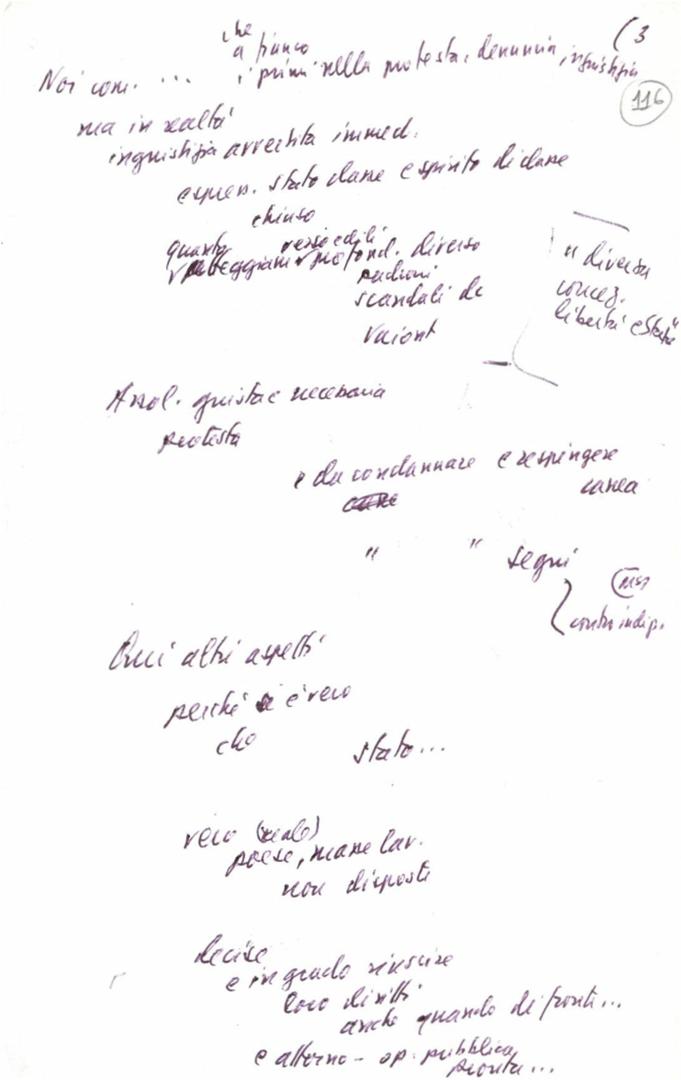 (3
116
che
a fianco
Noi com. ... i primi nella protesta, denuncia, ingiustizia
ma in realtà
ingiustizia avvertita immed.
espres. stato classe e spirito di classe
chiuso
quanto verso edili
atteggiam. profond. diverso
padroni
scandali dc
Vaiont
"diversa
concez.
libertà e Stato"
Assol. giusta e necessaria
protesta
e da condannare e respingere
canea
" " segni
contro indip.
Qui altri aspetti
perché è vero
che stato...
vero (reale)
paese, masse lav.
non disposti
decise
e in grado riuscire
loro diritti
anche quando di fronte...
e attorno - op. pubblica
pronta...